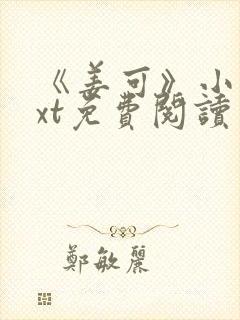 《姜可》小
xt免費閱讀
鄭敏麗